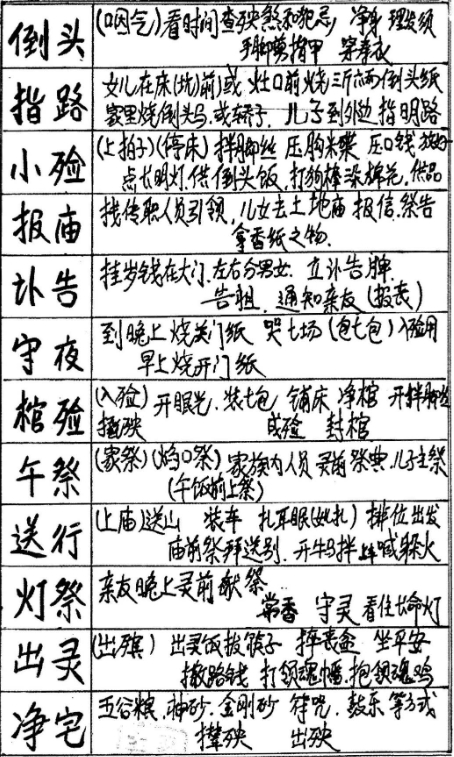 倒头 (咽气)看时间查殃煞和犯忌 净身 理发须
手脚剪指甲 穿寿衣
指路 女儿在床(炕)前或灶口前烧三斤六两倒头纸
家里烧倒头马,或轿子. 儿子到外边指明路
小殓 (上拍子)(停床)拌脚丝 压胸米 压口钱 放好
点长明灯.供倒头饭,打狗棒 棉花.供品
报庙 找传职人员引领,儿女去土地庙报信.祭告
拿香纸之物.
讣告 挂岁钱在大门.左右分男女. 立讣告牌.
告祖. 通知亲友(报丧)
守夜 到晚上烧关门纸 哭七场(包七包)入殓用
早上烧开门纸
棺殓 (入殓)开眼光.装七包 铺床 净棺 开拌脚丝
撵殃 成殓 封棺
午祭 (家祭)(焰口祭)家族内人员灵前祭典.儿子主祭
(午饭前上祭)
送行 (上庙)送山 装车 扎耳眼(女扎)排位出发
庙前祭拜送别.开牛马拌 喊 火
灯祭 亲友晚上灵前献祭
常香 守灵 看住长命灯
出灵 (出殡)出灵饭拔筷子 摔丧盆 坐平安
撒路钱 打领魂幡.抱领魂鸡
净宅 五谷粮.神砂.金刚砂 符咒.鼓乐等方式
撵殃 出殃